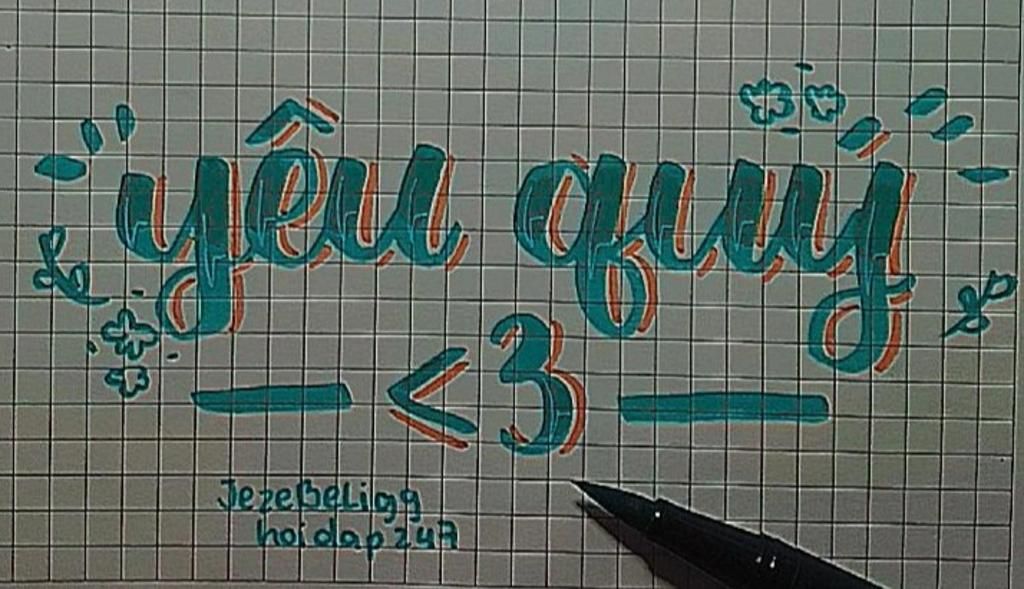 yêu quý
<3
JezeBeLigg
hoidap247